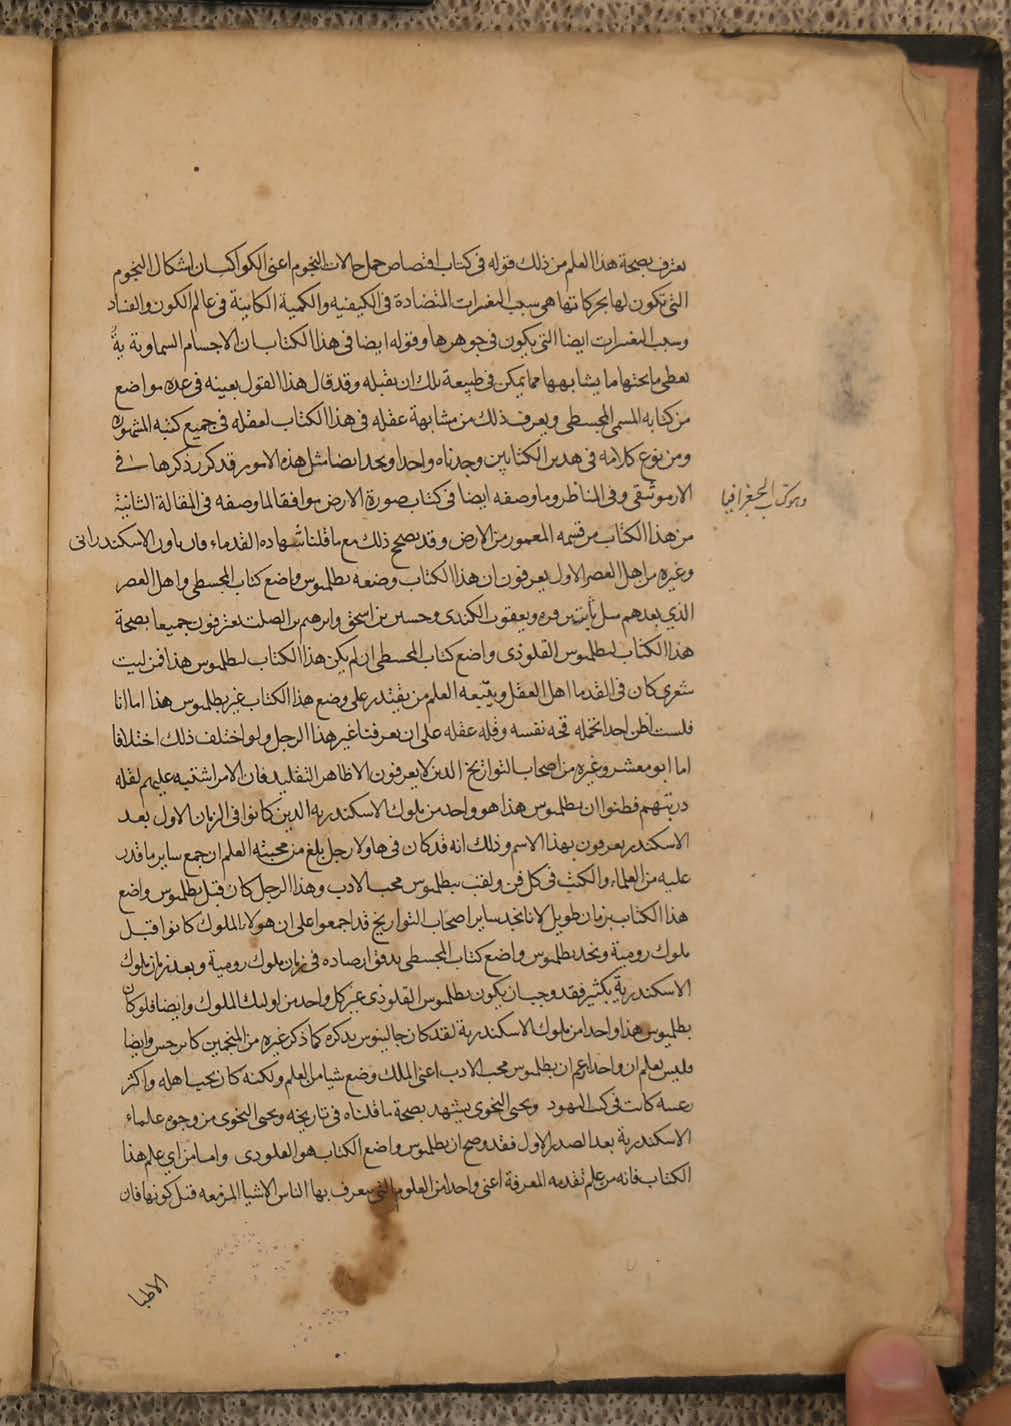 يعترف بصحة هذا العلم من ذلك قوله في كتاب اقتصاص جمل حالات النجوم اعني الكواكب ان اشكال النجوم
التي تكون لها بحركاتها هي سبب التغيرات المتضادة في الكيفيه والكمية الكاينة في عالم الكون والفساد
وسبب التغيرات ايضا التي يكون في جوهرها وقوله ايضا في هذا الكتاب ان الاجسام السماوية
يعطي ما تحتها ما يشابهها مما يمكن في طبيعة تلك ان يقبله وقد قال هذا القول بعينه في عده مواضع
من كتابه المسمى المجسطي ويعرف ذلك من مشابهة عقله في هذا الكتاب لعقله في جميع كتبه المشهوره
ومن نوع كلامه في هذين الكتابين وجدناه واحدا ونجد ايضا مثل هذه الامور قد كرر ذكرها في
الارموثيقي وفي المناظر وما وصفه ايضا في كتاب صورة الارض موافقا لما وصفه في المقالة الثانية
وهو كتاب الجغرافيا
من هذا الكتاب من قسمه المعمور من الارض وقد يصحح ذلك مع ما قلنا شهاده القدماء فان ثاون الاسكندراني
وغيره من اهل العصر الاول يعرفون ان هذا الكتاب وضعه بطلميوس واضع كتاب المجسطي واهل العصر
الذي بعدهم مثل ثابت بن قره ويعقوب الكندي وحسين بن اسحق وابرهيم بن الصلت يعترفون جميعا بصحة
هذا الكتاب لبطلميوس القلوذي واضع كتاب المجسطي ان لم يكن هذا الكتاب لبطلميوس هذا فمن ليت
شعري كان في القدما اهل العقل العلم من يقتدر على وضع هذا الكتاب غير بطلميوس هذا اما انا
فلست اظن احدا تحمله قحه نفسه وقله عقله على ان يعرفنا غير هذا الرجل ولو اختلف ذلك اختلافا
اما ابو معشر وغيره من اصحاب التواريخ الذين لا يعرفون الا ظاهر التقليد فان الامر اشتبه عليهم لقله
دربتهم فظنوا ان بطلميوس هذا هو واحد من ملوك الاسكندريه الذين كانوا في الزمان الاول بعد
الاسكندر يعرفون بهذا الاسم وذلك انه قد كان في هاولا رجل بلغ من محبته العلم ان جمع ساير ما قدر
عليه من العلماء والكتب في كل فن ولقب ببطلميوس محب الادب وهذا الرجل كان قبل بطلميوس واضع
هذا الكتاب بزمان طويل لانا نجد ساير اصحاب التواريخ قد اجمعوا على ان هولاء الملوك كانوا قبل
ملوك رومية ونجد بطلميوس واضع كتاب المجسطي ارصاده في زمان ملوك رومية وبعد زمان ملوك
الاسكندرية بكثير فقد وجب ان يكون بطلميوس القلوذي غير كل واحد من اوليك الملوك وايضا فلو كان
بطلميوس هذا واحدا من ملوك الاسكندرية لقد كان جالينوس يذكره كما ذكر غيره من المنجمين كابرجس وايضا
فليس نعلم ان واحدا زعم ان بطلميوس محب الادب اعني الملك وضع شيا من العلم ولكنه كان يحب اهله واكثر
رغبته كانت في كتب اليهود ويحيى النحوي يشهد بصحة ما قلناه في تاريخه ويحيى النحوي من وجوه علماء
الاسكندرية بعد الصدر الاول فقد وضح ان بطلميوس واضع الكتاب هو القلوذي واما من اي علم هذا
الكتاب فانه من علم تقدمه المعرفة اعني واحدا من العلوم التي يعرف بها الناس الاشيا المزمعه قبل كونها فان
الاطبا